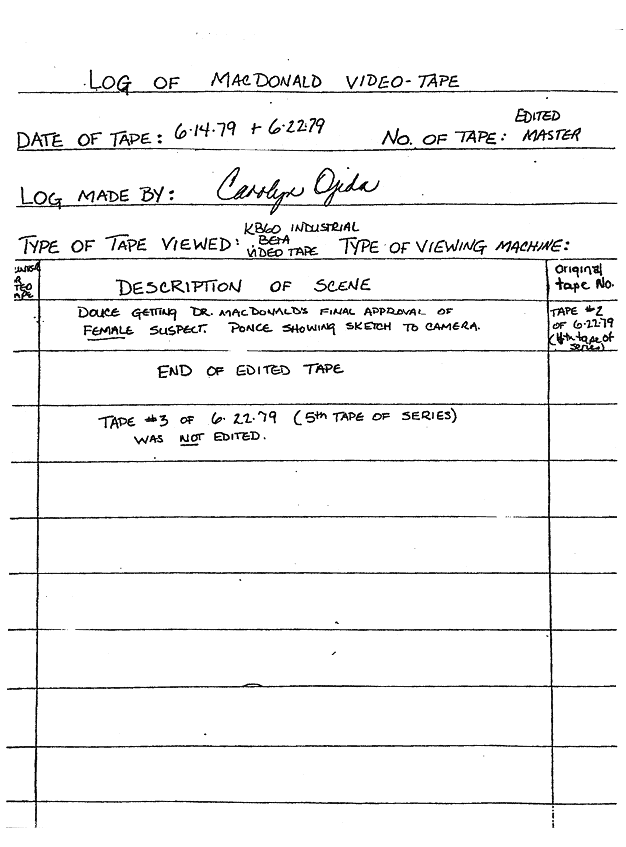 LOG OF MACDONALD VIDEO-TAPE
DATE OF TAPE: 6·14·79 + 6·22·79 No. OF TAPE: EDITED MASTER
LOG MADE BY: Carolyn Ojeda
TYPE OF TAPE VIEWED: KB60 INDUSTRIAL BETA VIDEO TAPE TYPE OF VIEWING MACHINE:
DESCRIPTION OF SCENE Original tape No.
GETTING DR. MACDONALD'S FINAL APPROVAL OF TAPE #2
FEMALE SUSPECT. PONCE SHOWING SKETCH TO CAMERA. OF 6·22·79
(4th tape of series)
END OF EDITED TAPE
TAPE #3 OF 6·22·79 (5th TAPE OF SERIES)
WAS NOT EDITED.